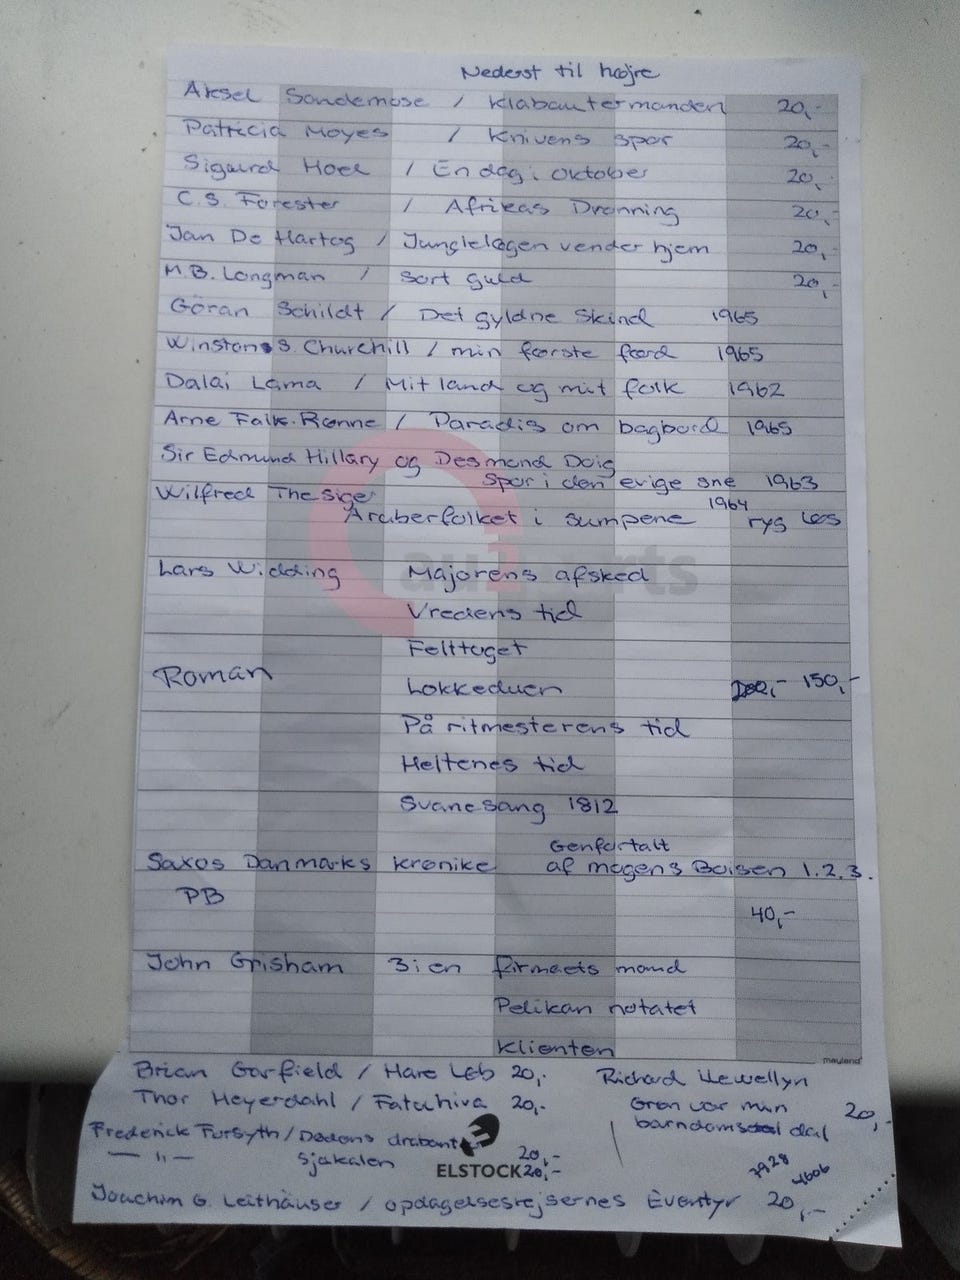 Nederst til højre
Aksel Sandemose / Klabautermanden 20,-
Patricia Moyes / Knivens spor 20,-
Sigurd Hoel / En dag i oktober 20,-
C.S. Forester / Afrikas Dronning 20,-
Jan De Hartog / Junglelægen vender hjem 20,-
M.B. Longman / Sort guld 20,-
Göran Schildt / Det gyldne Skind 1965
Winston S. Churchill / min første færd 1965
Dalai Lama / Mit land og mit folk 1962
Arne Falk-Rønne / Paradis om bagbord 1965
Sir Edmund Hillary og Desmond Doig
Spor i den evige sne 1963
Wilfred Thesiger 1964
Araberfolket i sumpene ryg løs
Lars Widding Majorens afsked
Vredens tid
Felttoget
Roman Lokkeduen 150,-
På ritmesterens tid
Heltenes tid
Svanesang 1812
Genfortalt
Saxos Danmarks krønike af mogens Boisen 1.2.3.
PB
40,-
John Grisham 3 i en firmaets mand
Pelikan notatet
Klienten
mayland
Brian Garfield / Hare Leb 20,- Richard Llewellyn
Thor Heyerdahl / Fatuhiva 20,- Grøn var min 20,-
barndoms dal
Frederick Forsyth / Dødens drabant 20,-
— " — Sjakalen 20,-
ELSTOCK
7928
4606
Joachim G. Leithäuser / opdagelsesrejsernes Eventyr 20,-